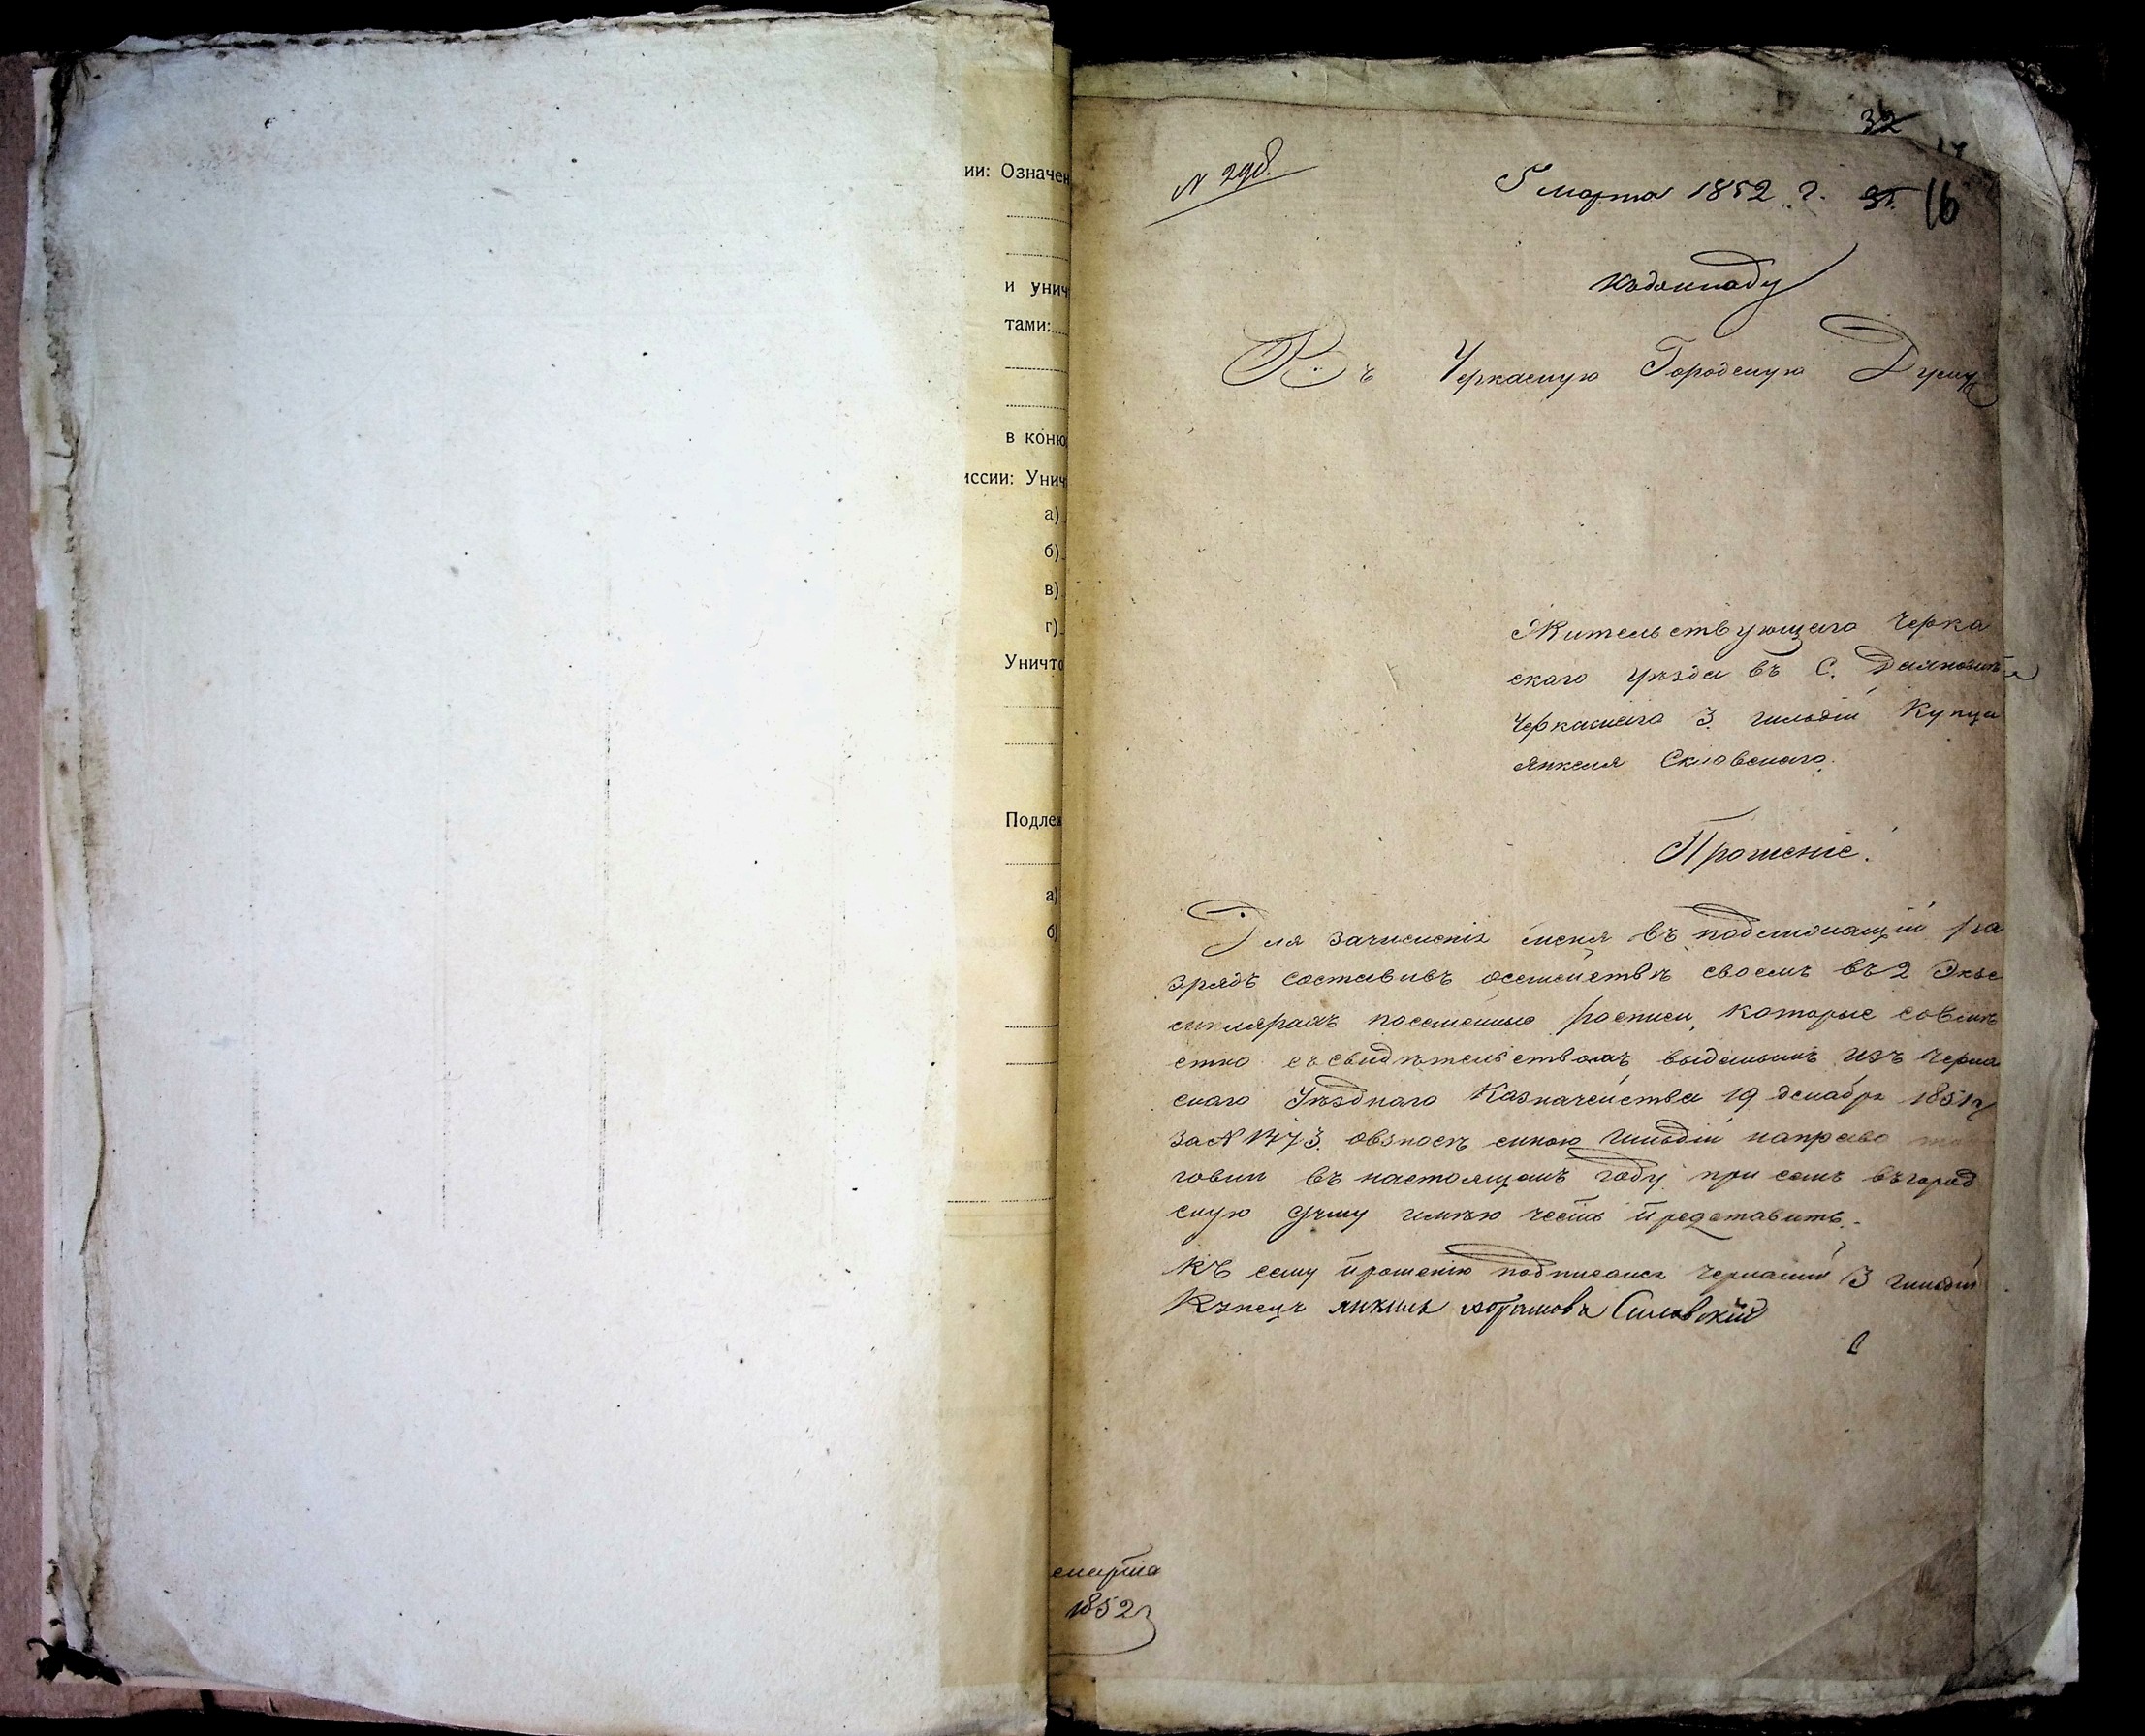 ии: Означен
и унич
тами:
в коню
иссии: Унич
а)
б)
в)
г)
Уничто
Подлеж
а)
б)
32
17
N 298.
5 марта 1852 г. 31. 16
Къдокладу
Въ Черкаскую Городскую Думу
Жительствующаго Черка
скаго уѣзда въ С.
Черкаскаго 3 гильдіи Купца
Янкеля Скловскаго.
Прошеніе.
Для зачисленія меня въ подлежащій ра
зрядъ составивъ осемействѣ своемъ въ 2 Экзе
мплярахъ посемейные росписи, которые совмѣ
стно съ свидѣтельствомъ выданымъ изъ Черка
скаго Уѣзднаго Казначейства 19 декабря 1851 г
За N 1473. овзносѣ мною гильдіи направо тор
говли въ настоящемъ году, при семъ въгород
скую думу имѣю честь представить.
Къ сему прошенію подписался Черкаскій 3 гильдіи
Купецъ Янкель Скловскій
марта
1852 г